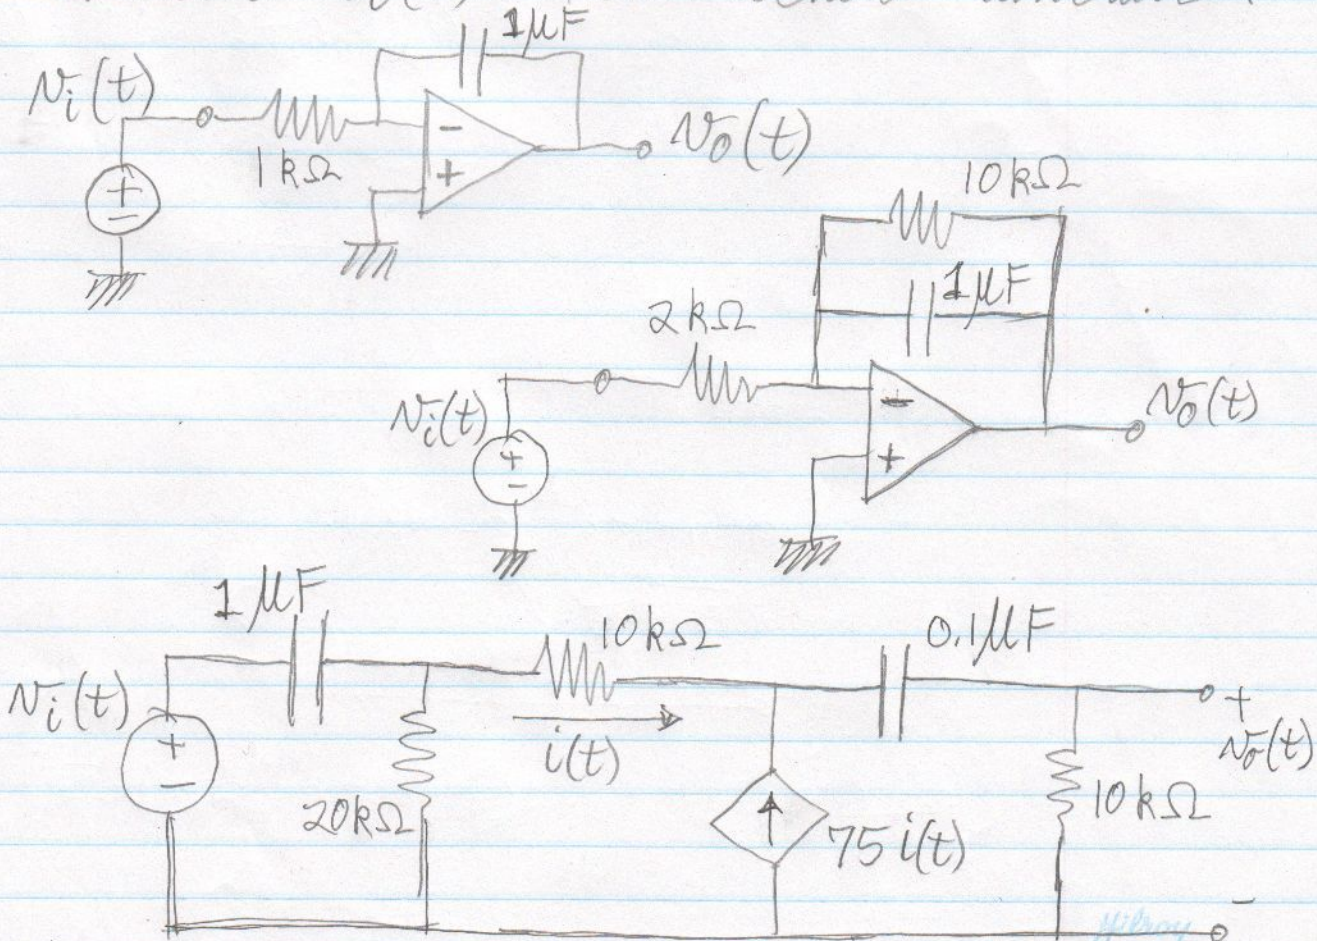 1μF
v_i(t)
1kΩ
-
+
v_o(t)
+
-
10kΩ
1μF
2kΩ
v_i(t)
-
+
v_o(t)
+
-
1μF
10kΩ
0.1μF
v_i(t)
+
-
i(t)
20kΩ
75 i(t)
10kΩ
+
v_o(t)
-
Hilroy